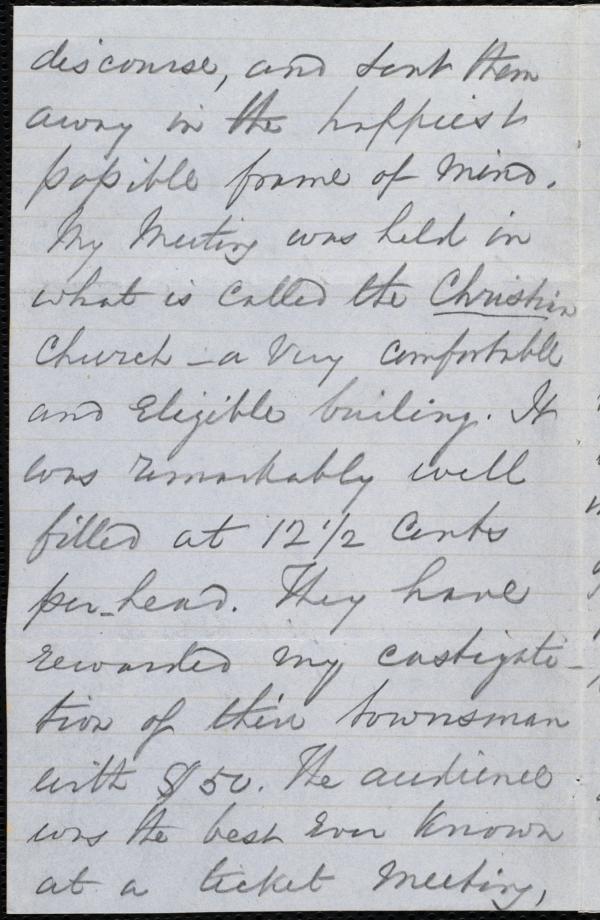 discourse, and sent them
away in the happiest
possible frame of mind.
My Meeting was held in
what is called the Christian
Church - a very comfortable
and Eligible builing. It
was remarkably well
filled at 12 1/2 Cents
per-head. They have
rewarded my castigati-
tion of their townsman
with $50. The audience
was the best ever known
at a ticket meeting,